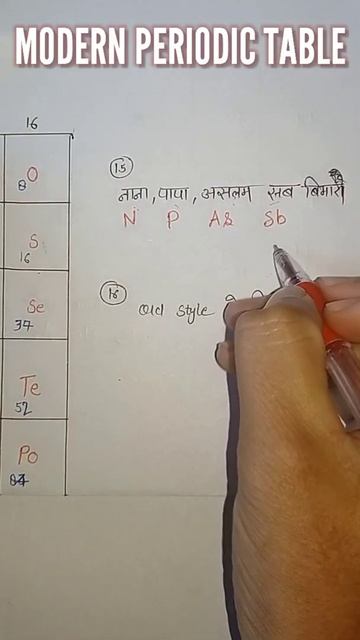 MODERN PERIODIC TABLE
16
O
8
S
16
Se
34
Te
52
Po
84
15
नाना, पापा, असलम सब बिमार
N P As Sb
16
old style